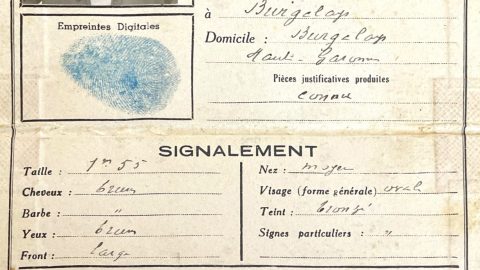 Empreintes Digitales
à Burgalays
Domicile : Burgalays
Haute-Garonne
Pièces justificatives produites
connu
SIGNALEMENT
Taille : 1m55
Cheveux : brun
Barbe : "
Yeux : brun
Front : large
Nez : moyen
Visage (forme générale) ovale
Teint : bronzé
Signes particuliers : "